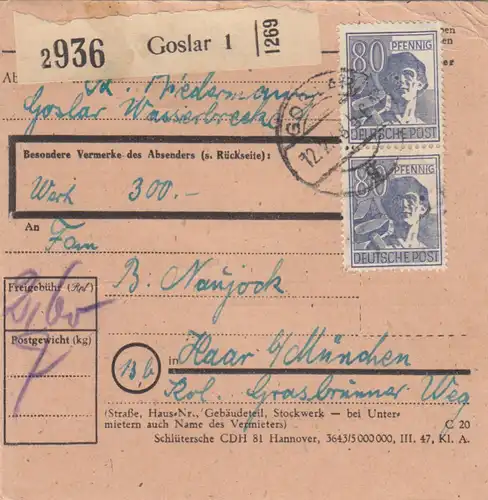 2936 Goslar 1 1269
80 PFENNIG
DEUTSCHE POST
80 PFENNIG
DEUTSCHE POST
Goslar
Besondere Vermerke des Absenders (s. Rückseite):
Wert 300.-
An
Fam
B. Naujock
Freigebühr (Rpf)
2,60
Postgewicht (kg)
7
13b
in Haar b/München
Kol. Grasbrunner Weg
(Straße, Haus-Nr., Gebäudeteil, Stockwerk — bei Unter-
mietern auch Name des Vermieters) C 20
Schlütersche CDH 81 Hannover, 3643/5 000 000, III. 47, Kl. A.